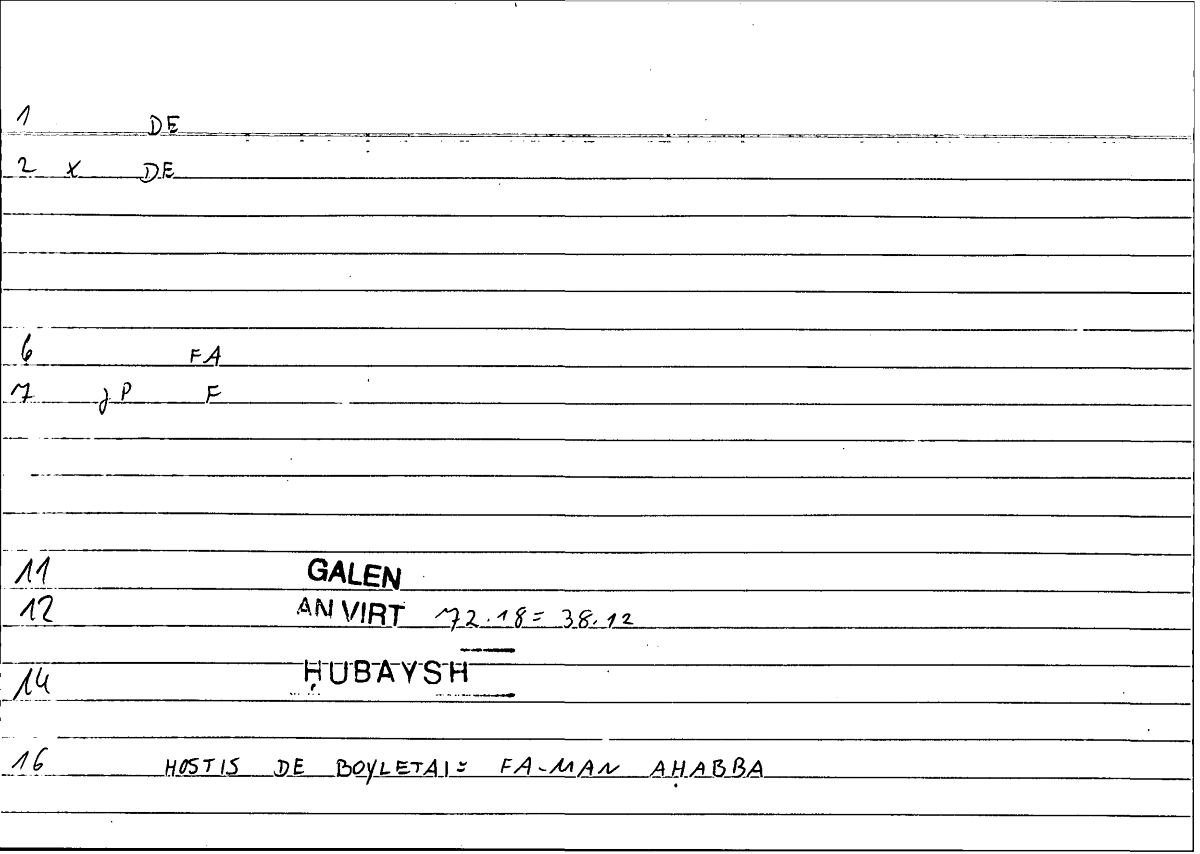 1 DE
2 x DE
6 FA
7 jP F
11 GALEN
12 AN VIRT 72.18 = 38.12
14 ḤUBAYSH
16 HOSTIS DE BOYLETAI = FA-MAN AḤABBA